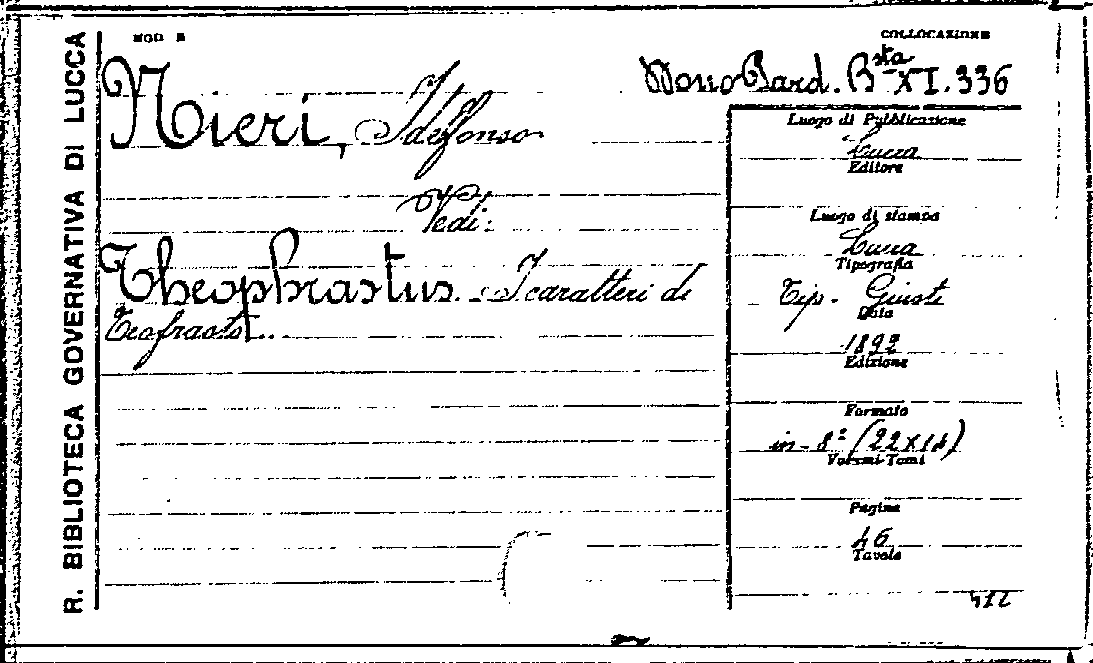 R. BIBLIOTECA GOVERNATIVA DI LUCCA
MOD. B
COLLOCAZIONE
Mono Bard. Bsta XI. 336
Nieri, Idelfonso
Vedi:
Theophrastus. - I caratteri di
Teofrasto..
Luogo di Pubblicazione
Lucca
Editore
Luogo di stampa
Lucca
Tipografia
Tip. Giusti
Data
1892
Edizione
Formato
in-8º (22x14)
Volumi-Tomi
Pagine
46
Tavole